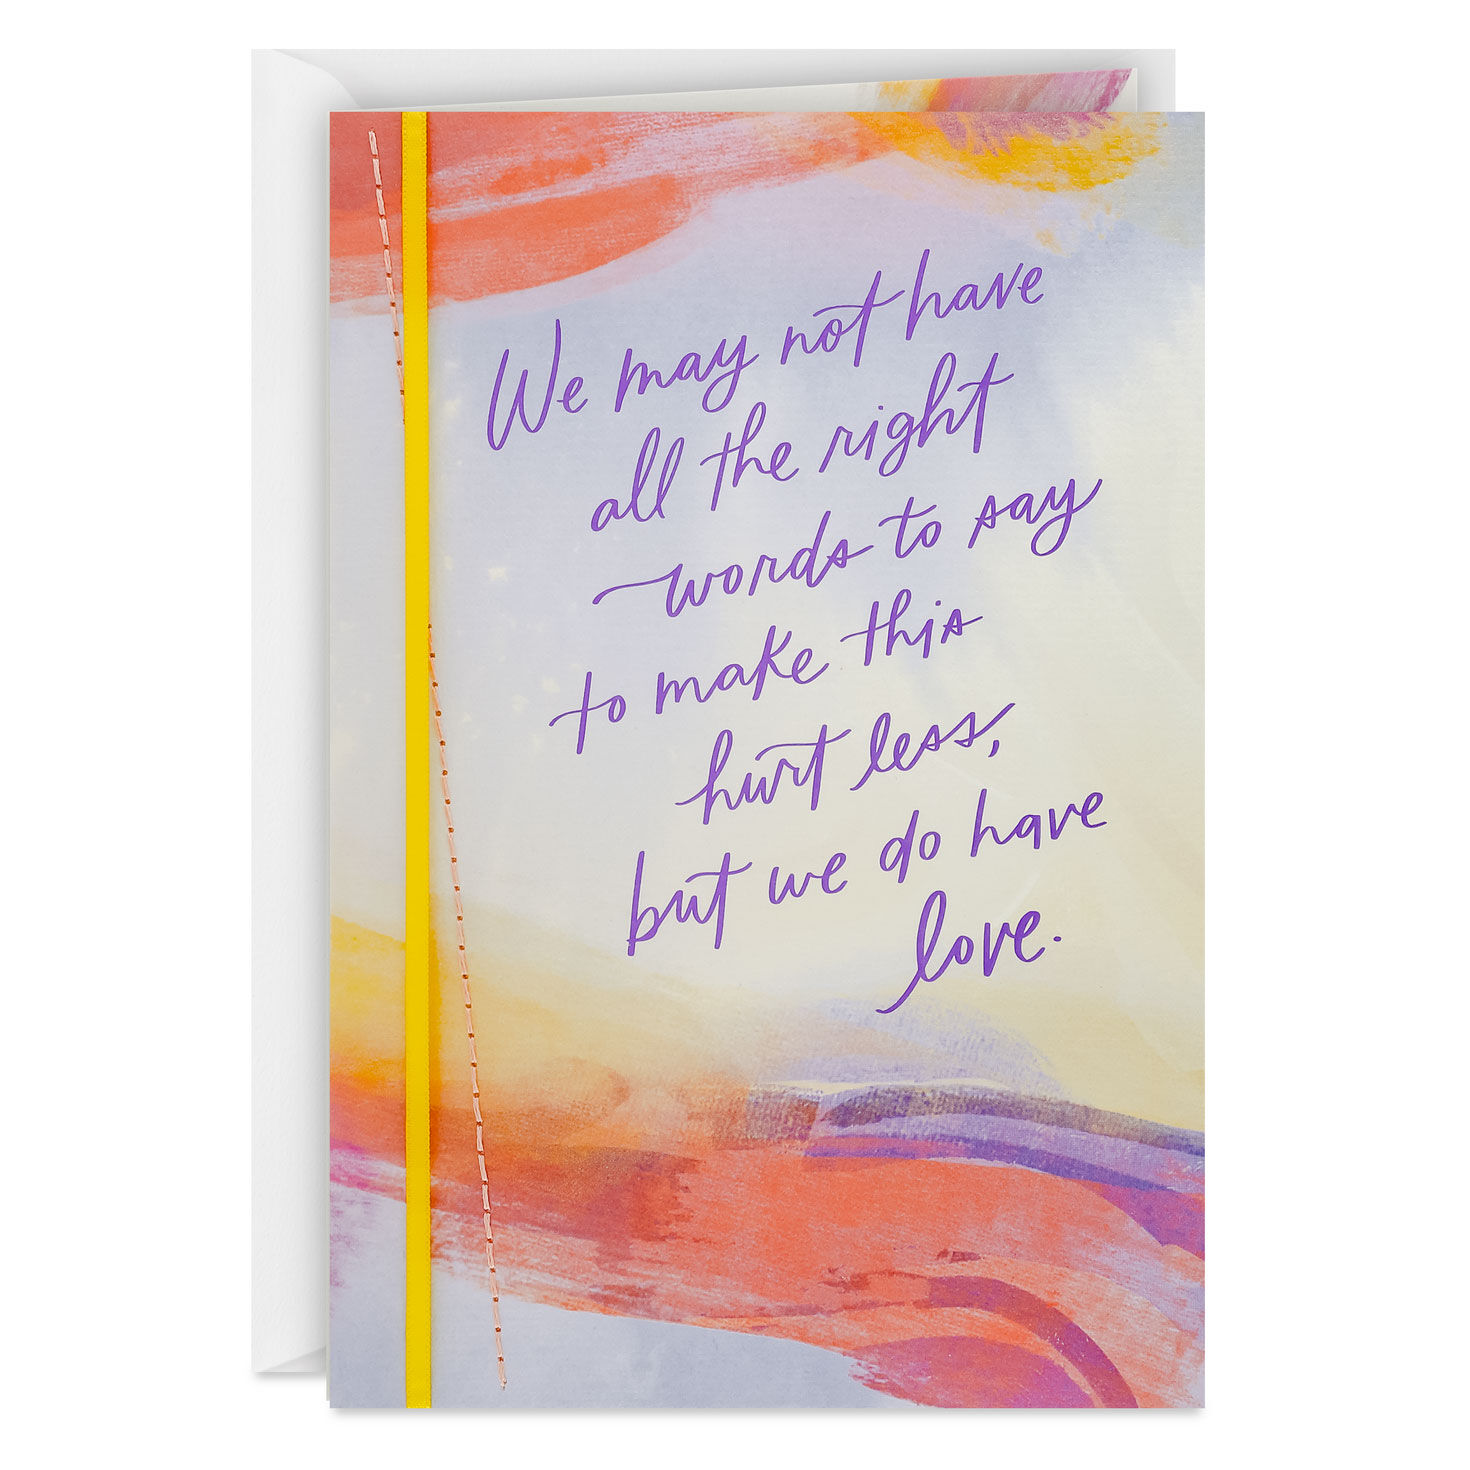 We may not have
all the right
words to say
to make this
hurt less,
but we do have
love.